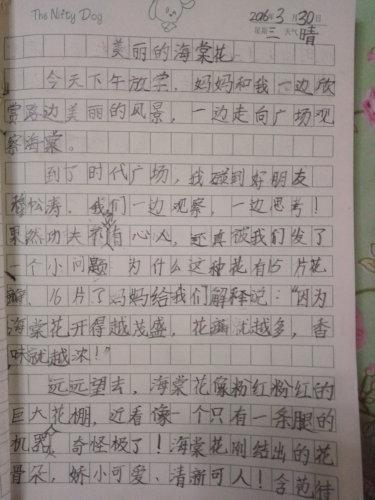 The Nifty Dog
2016年3月30日
星期三 天气 晴
美丽的海棠花
今天下午放学，妈妈和我一边欣
赏路边美丽的风景，一边走向广场观
察海棠。
到了时代广场，我碰到好朋友
穆松涛，我们一边观察，一边思考！
果然功夫不有心人，还真被我们发了
一个小问题 为什么这种花有15片花
瓣、16片了妈妈给我们解释说：“因为
海棠花开得越茂盛，花瓣就越多，香
味就越浓！”
远远望去，海棠花像粉红粉红的
巨大花棚，近看像一个只有一条腿的
机器 奇怪极了！海棠花刚结出的花
骨朵，娇小可爱、清新可人！含苞待